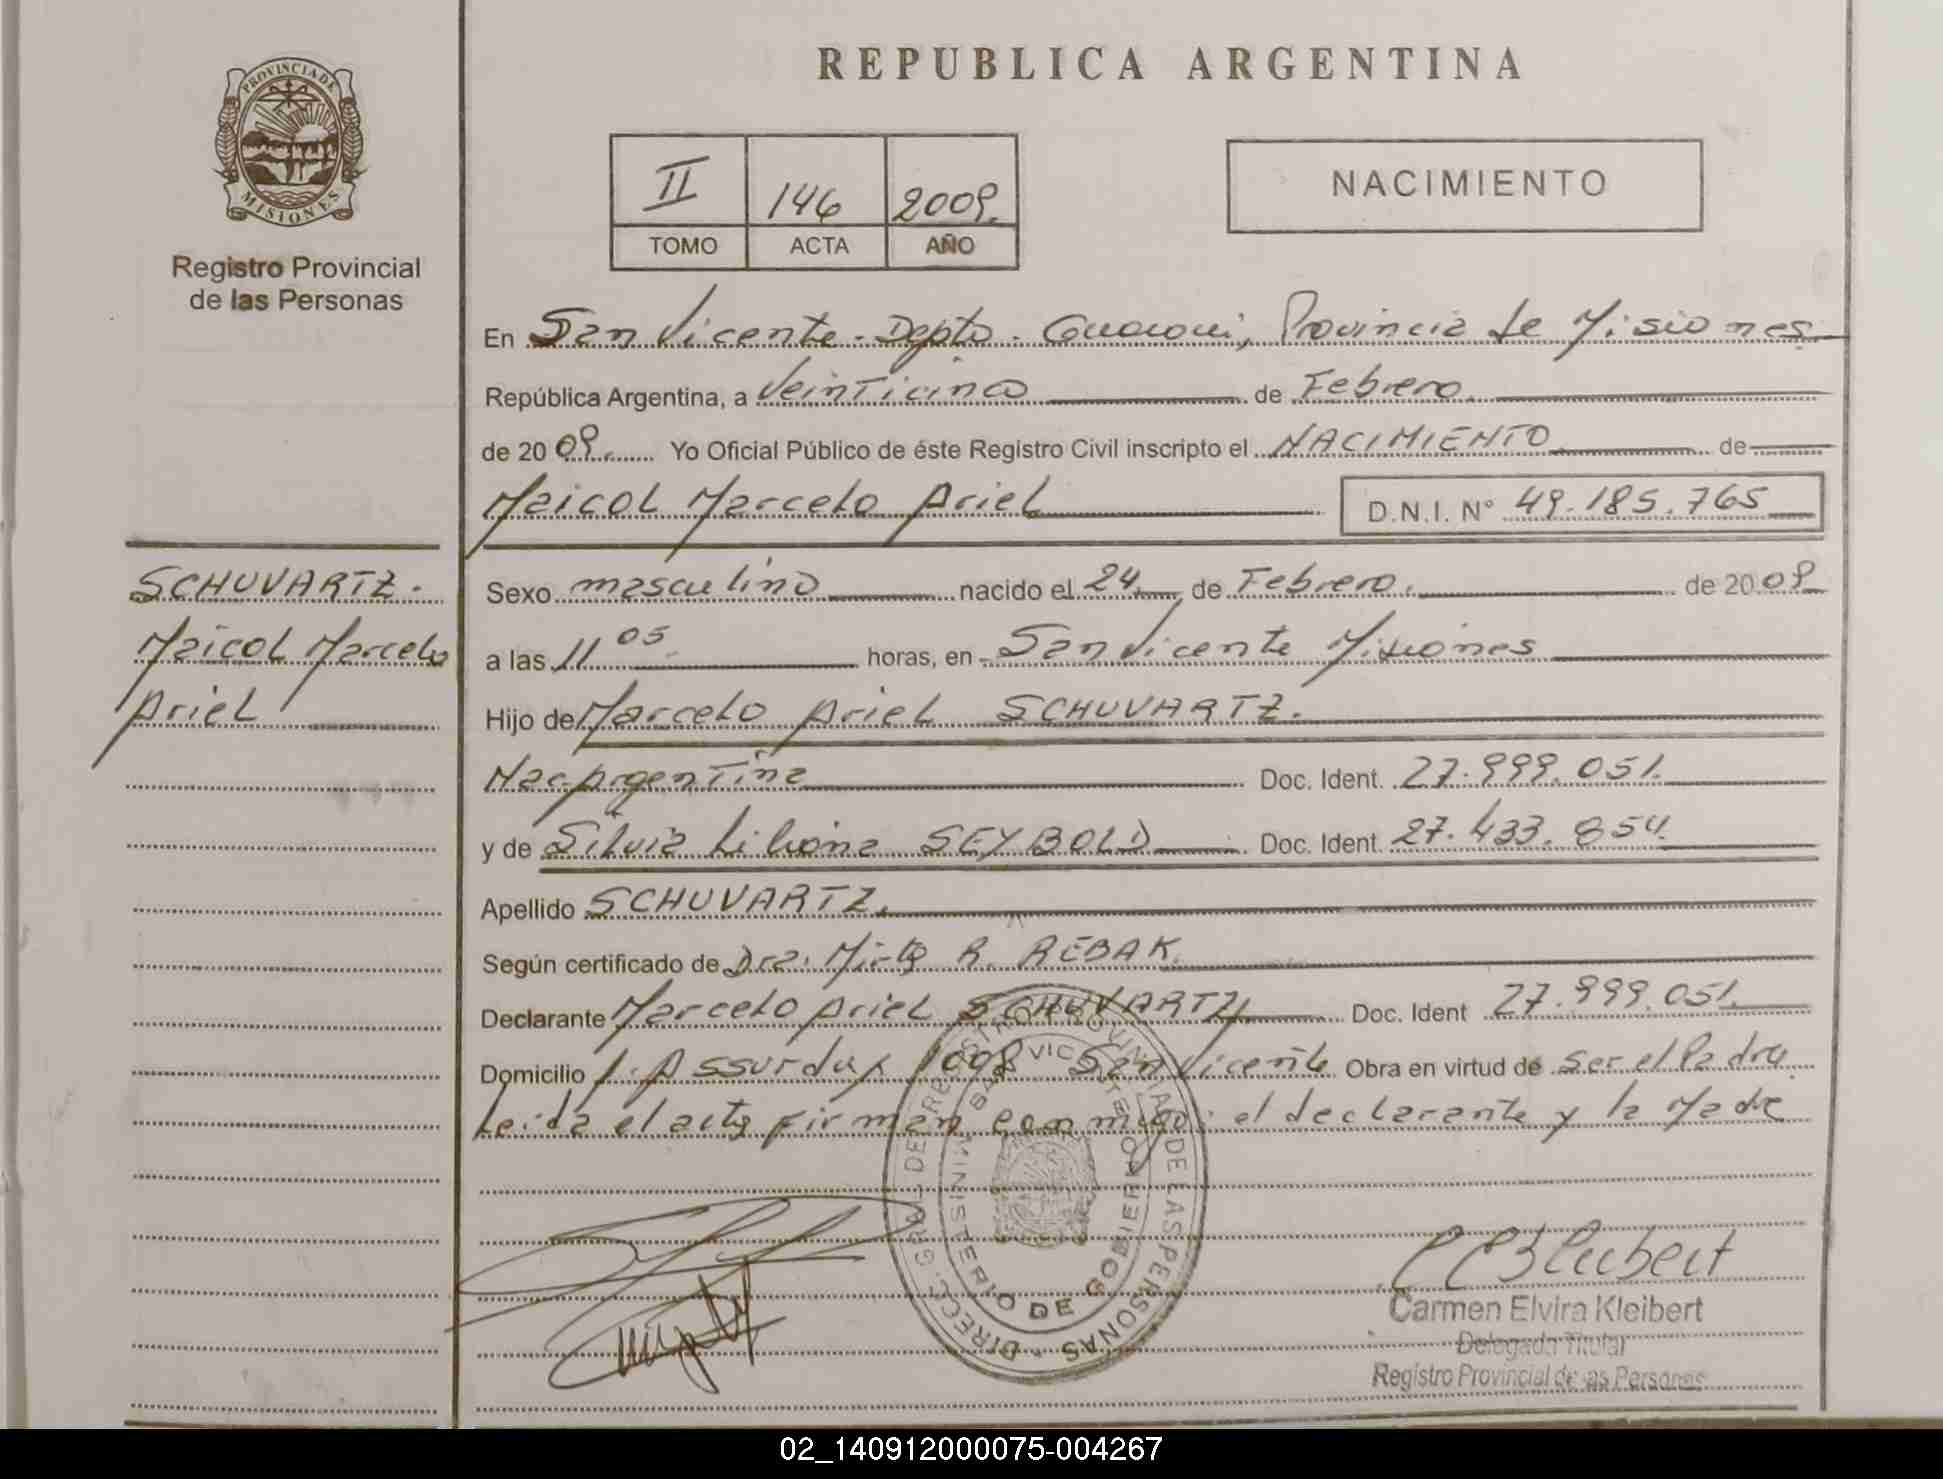 PROVINCIA DE
MISIONES
Registro Provincial
de las Personas
REPUBLICA ARGENTINA
II 146 2009.
TOMO ACTA AÑO
NACIMIENTO
En San Vicente - Depto. Guaraní, Provincia de Misiones
República Argentina, a Veinticinco de Febrero.
de 20 09. Yo Oficial Público de éste Registro Civil inscripto el NACIMIENTO de
Maicol Marcelo Ariel D.N.I. N° 49.185.765
SCHUVARTZ.
Maicol Marcelo
Ariel
Sexo masculino nacido el 24 de Febrero. de 20 09
a las 11 05 horas, en San Vicente Misiones
Hijo de Marcelo Ariel SCHUVARTZ.
Nac. Argentina Doc. Ident. 27.999.051.
y de Silvia Liliana SEYBOLD Doc. Ident. 27.433.854.
Apellido SCHUVARTZ.
Según certificado de Dra. Mirta R. REBAK.
Declarante Marcelo Ariel SCHUVARTZ Doc. Ident 27.999.051.
Domicilio 1098 San Vicente Obra en virtud de ser el Padre
Leída el acta firman conmigo: el declarante y la Madre
DIRECC. GRAL. DE REGISTRO PROVINCIAL DE LAS PERSONAS
MINISTERIO DE GOBIERNO
Carmen Elvira Kleibert
Delegada Titular
Registro Provincial de las Personas
02_140912000075-004267